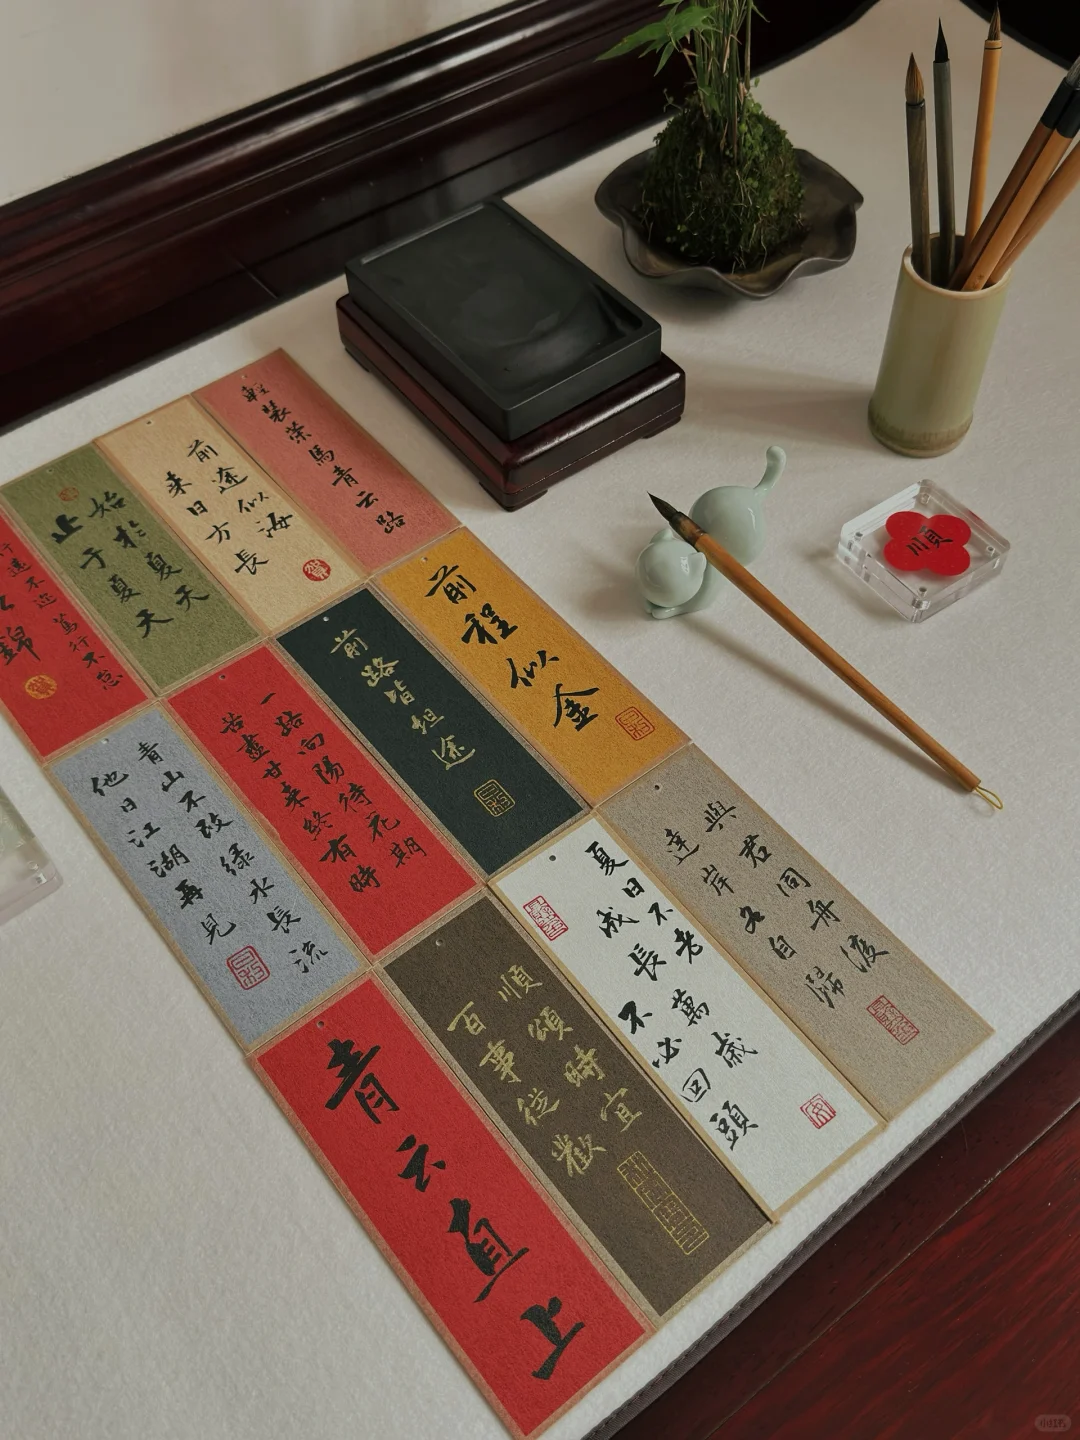 輕裝策馬青云路
前途似海
來日方長
始於夏天
止于夏天
行不怠
錦
前程似金
前路皆坦途
一路向陽待花期
苦盡甘來終有時
青山不改綠水長流
他日江湖再見
與君同舟渡
達岸各自歸
夏日不老萬歲
成長不必回頭
順頌時宜
百事從歡
青云直上
順
小红书